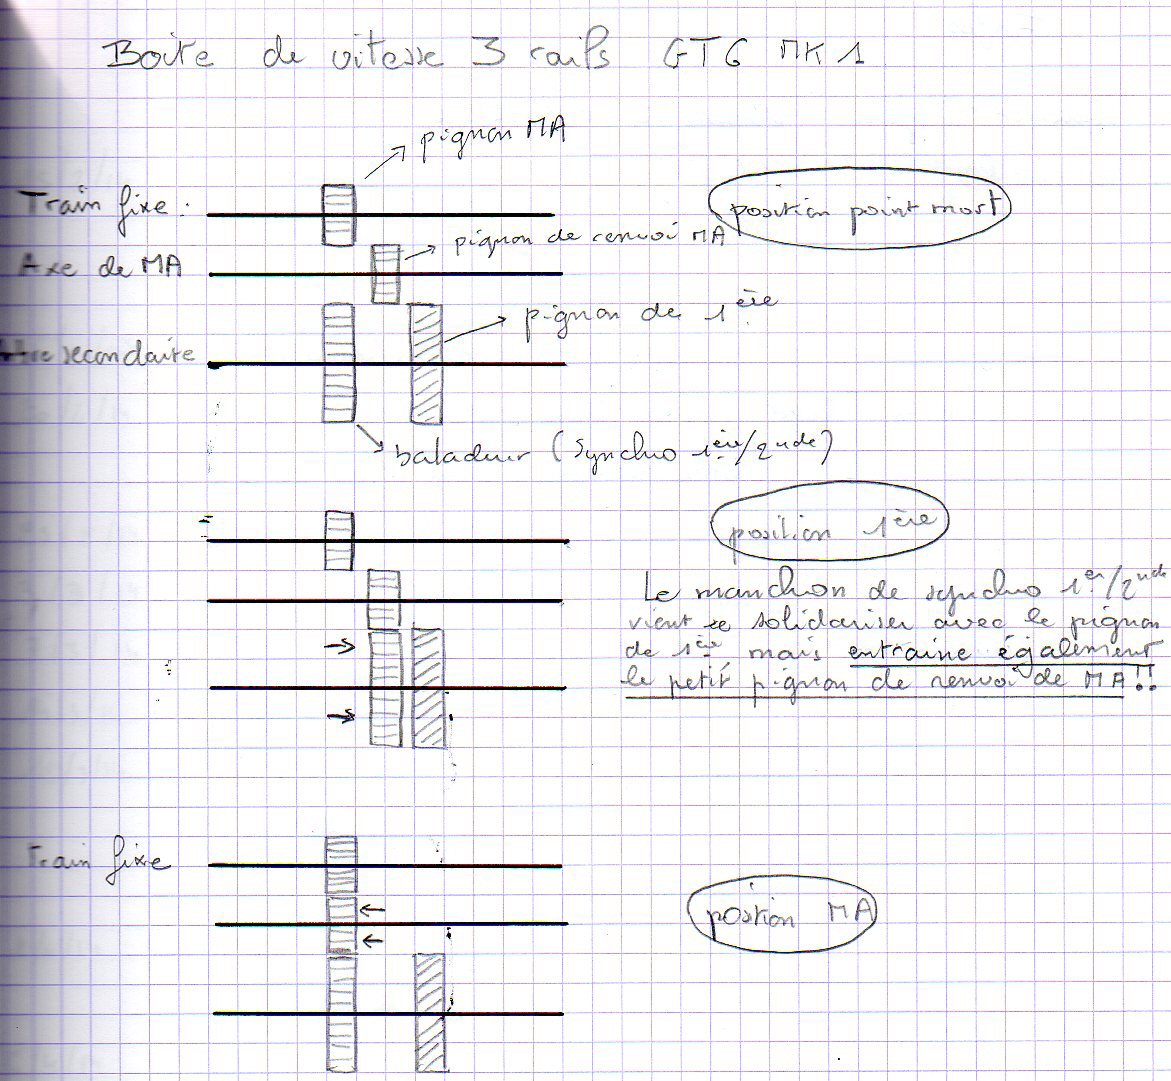 Boite de vitesse 3 rails GT6 MK1
pignon MA
Train fixe :
position point mort
pignon de renvoi MA
Axe de MA
pignon de 1ère
secondaire
baladeur (synchro 1ère/2nde)
position 1ère
Le manchon de synchro 1er/2nde
vient se solidariser avec le pignon
de 1ère mais entraine également
le petit pignon de renvoi de MA!!
Train fixe
position MA